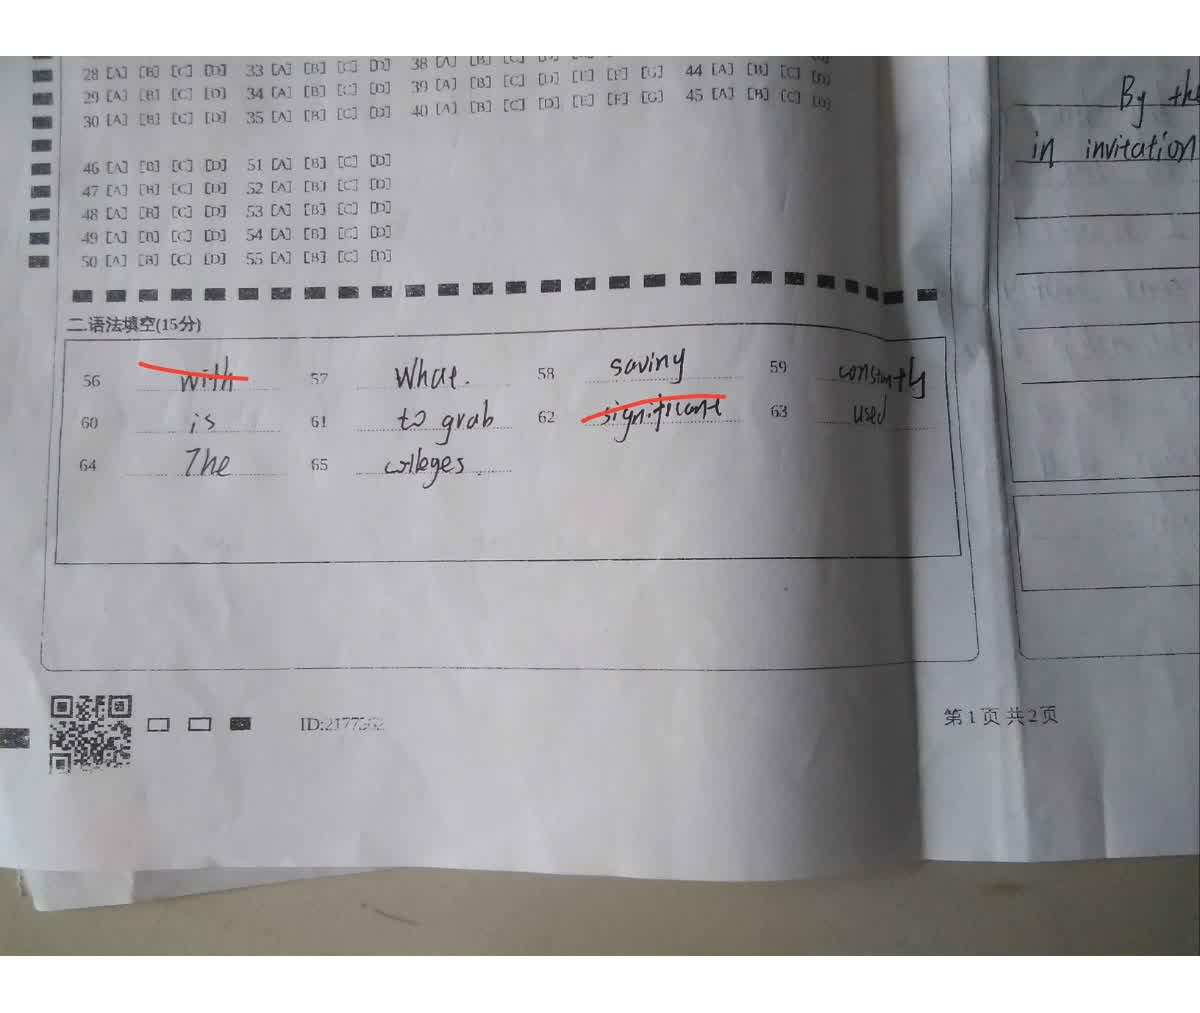 28 [A] [B] [C] [D] 33 [A] [B] [C] [D] 38 [A] [B] [C] [D]
29 [A] [B] [C] [D] 34 [A] [B] [C] [D] 39 [A] [B] [C] [D] [E] [F] [G] 44 [A] [B] [C] [D]
30 [A] [B] [C] [D] 35 [A] [B] [C] [D] 40 [A] [B] [C] [D] [E] [F] [G] 45 [A] [B] [C] [D]
46 [A] [B] [C] [D] 51 [A] [B] [C] [D]
47 [A] [B] [C] [D] 52 [A] [B] [C] [D]
48 [A] [B] [C] [D] 53 [A] [B] [C] [D]
49 [A] [B] [C] [D] 54 [A] [B] [C] [D]
50 [A] [B] [C] [D] 55 [A] [B] [C] [D]
二.语法填空(15分)
56 with 57 What. 58 saving 59 constantly
60 is 61 to grab 62 significant 63 used
64 The 65 colleges.
ID:2177562
第1页 共2页
By the
in invitation